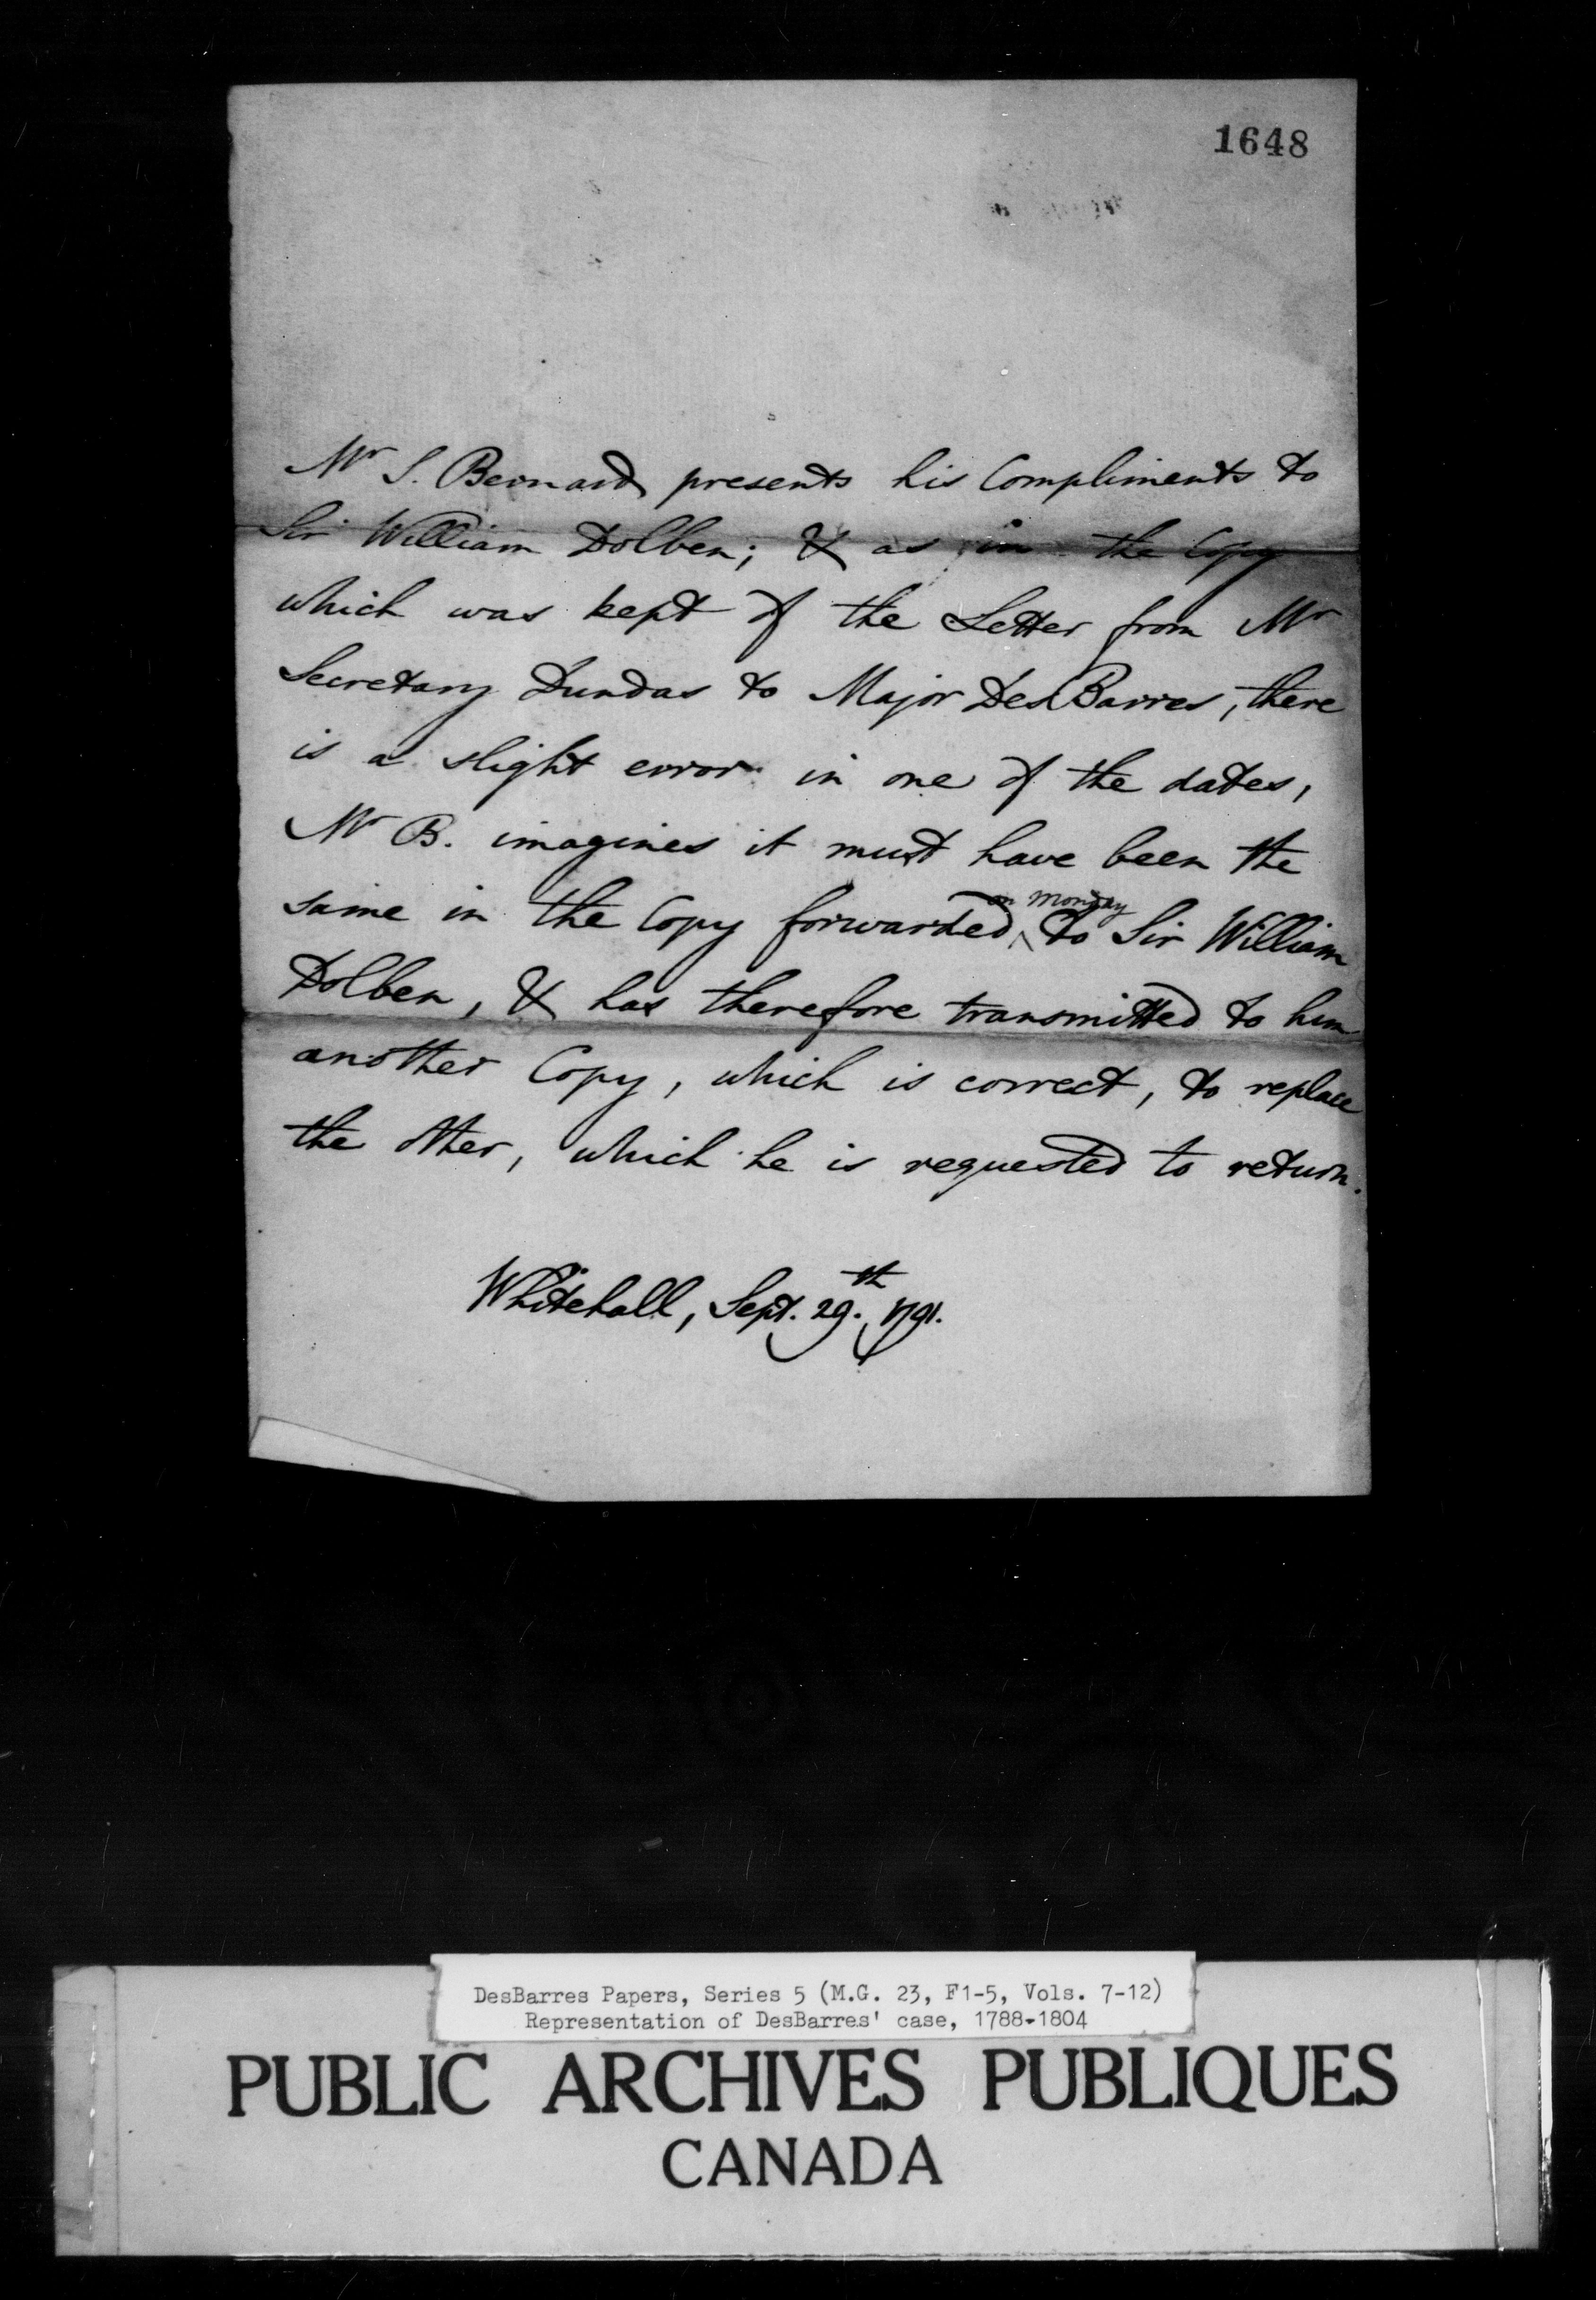 1648
Mr S. Bernard presents his Compliments to
Sir William Dolben; & as in the Copy
which was kept of the Letter from Mr
Secretary Dundas to Major DesBarres, there
is a slight error in one of the dates,
Mr B. imagines it must have been the
on Monday
same in the Copy forwarded ^ to Sir William
Dolben, & has therefore transmitted to him
another Copy, which is correct, to replace
the other, which he is requested to return.
Whitehall, Sept. 29.th, 1791.
DesBarres Papers, Series 5 (M.G. 23, F1-5, Vols. 7-12)
Representation of DesBarres' case, 1788-1804
PUBLIC ARCHIVES PUBLIQUES
CANADA